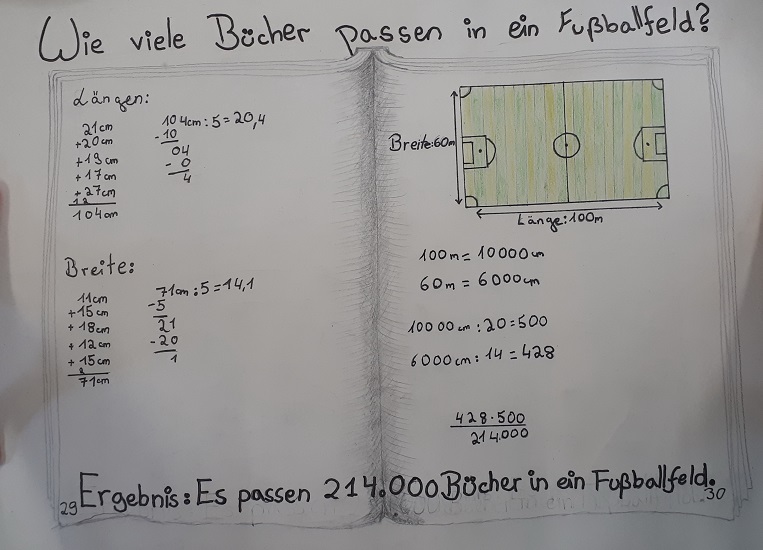 Wie viele Bücher passen in ein Fußballfeld?
Längen:
21cm
+20cm
+19cm
+17cm
+27cm
12
104cm
104cm:5=20,4
-10
04
-0
4
Breite:
11cm
+15cm
+18cm
+12cm
+15cm
2
71cm
71cm:5=14,1
-5
21
-20
1
Breite:60m
Länge:100m
100m=10000cm
60m=6000cm
10000cm:20=500
6000cm:14=428
428·500
214.000
Ergebnis: Es passen 214.000 Bücher in ein Fußballfeld.
29
30